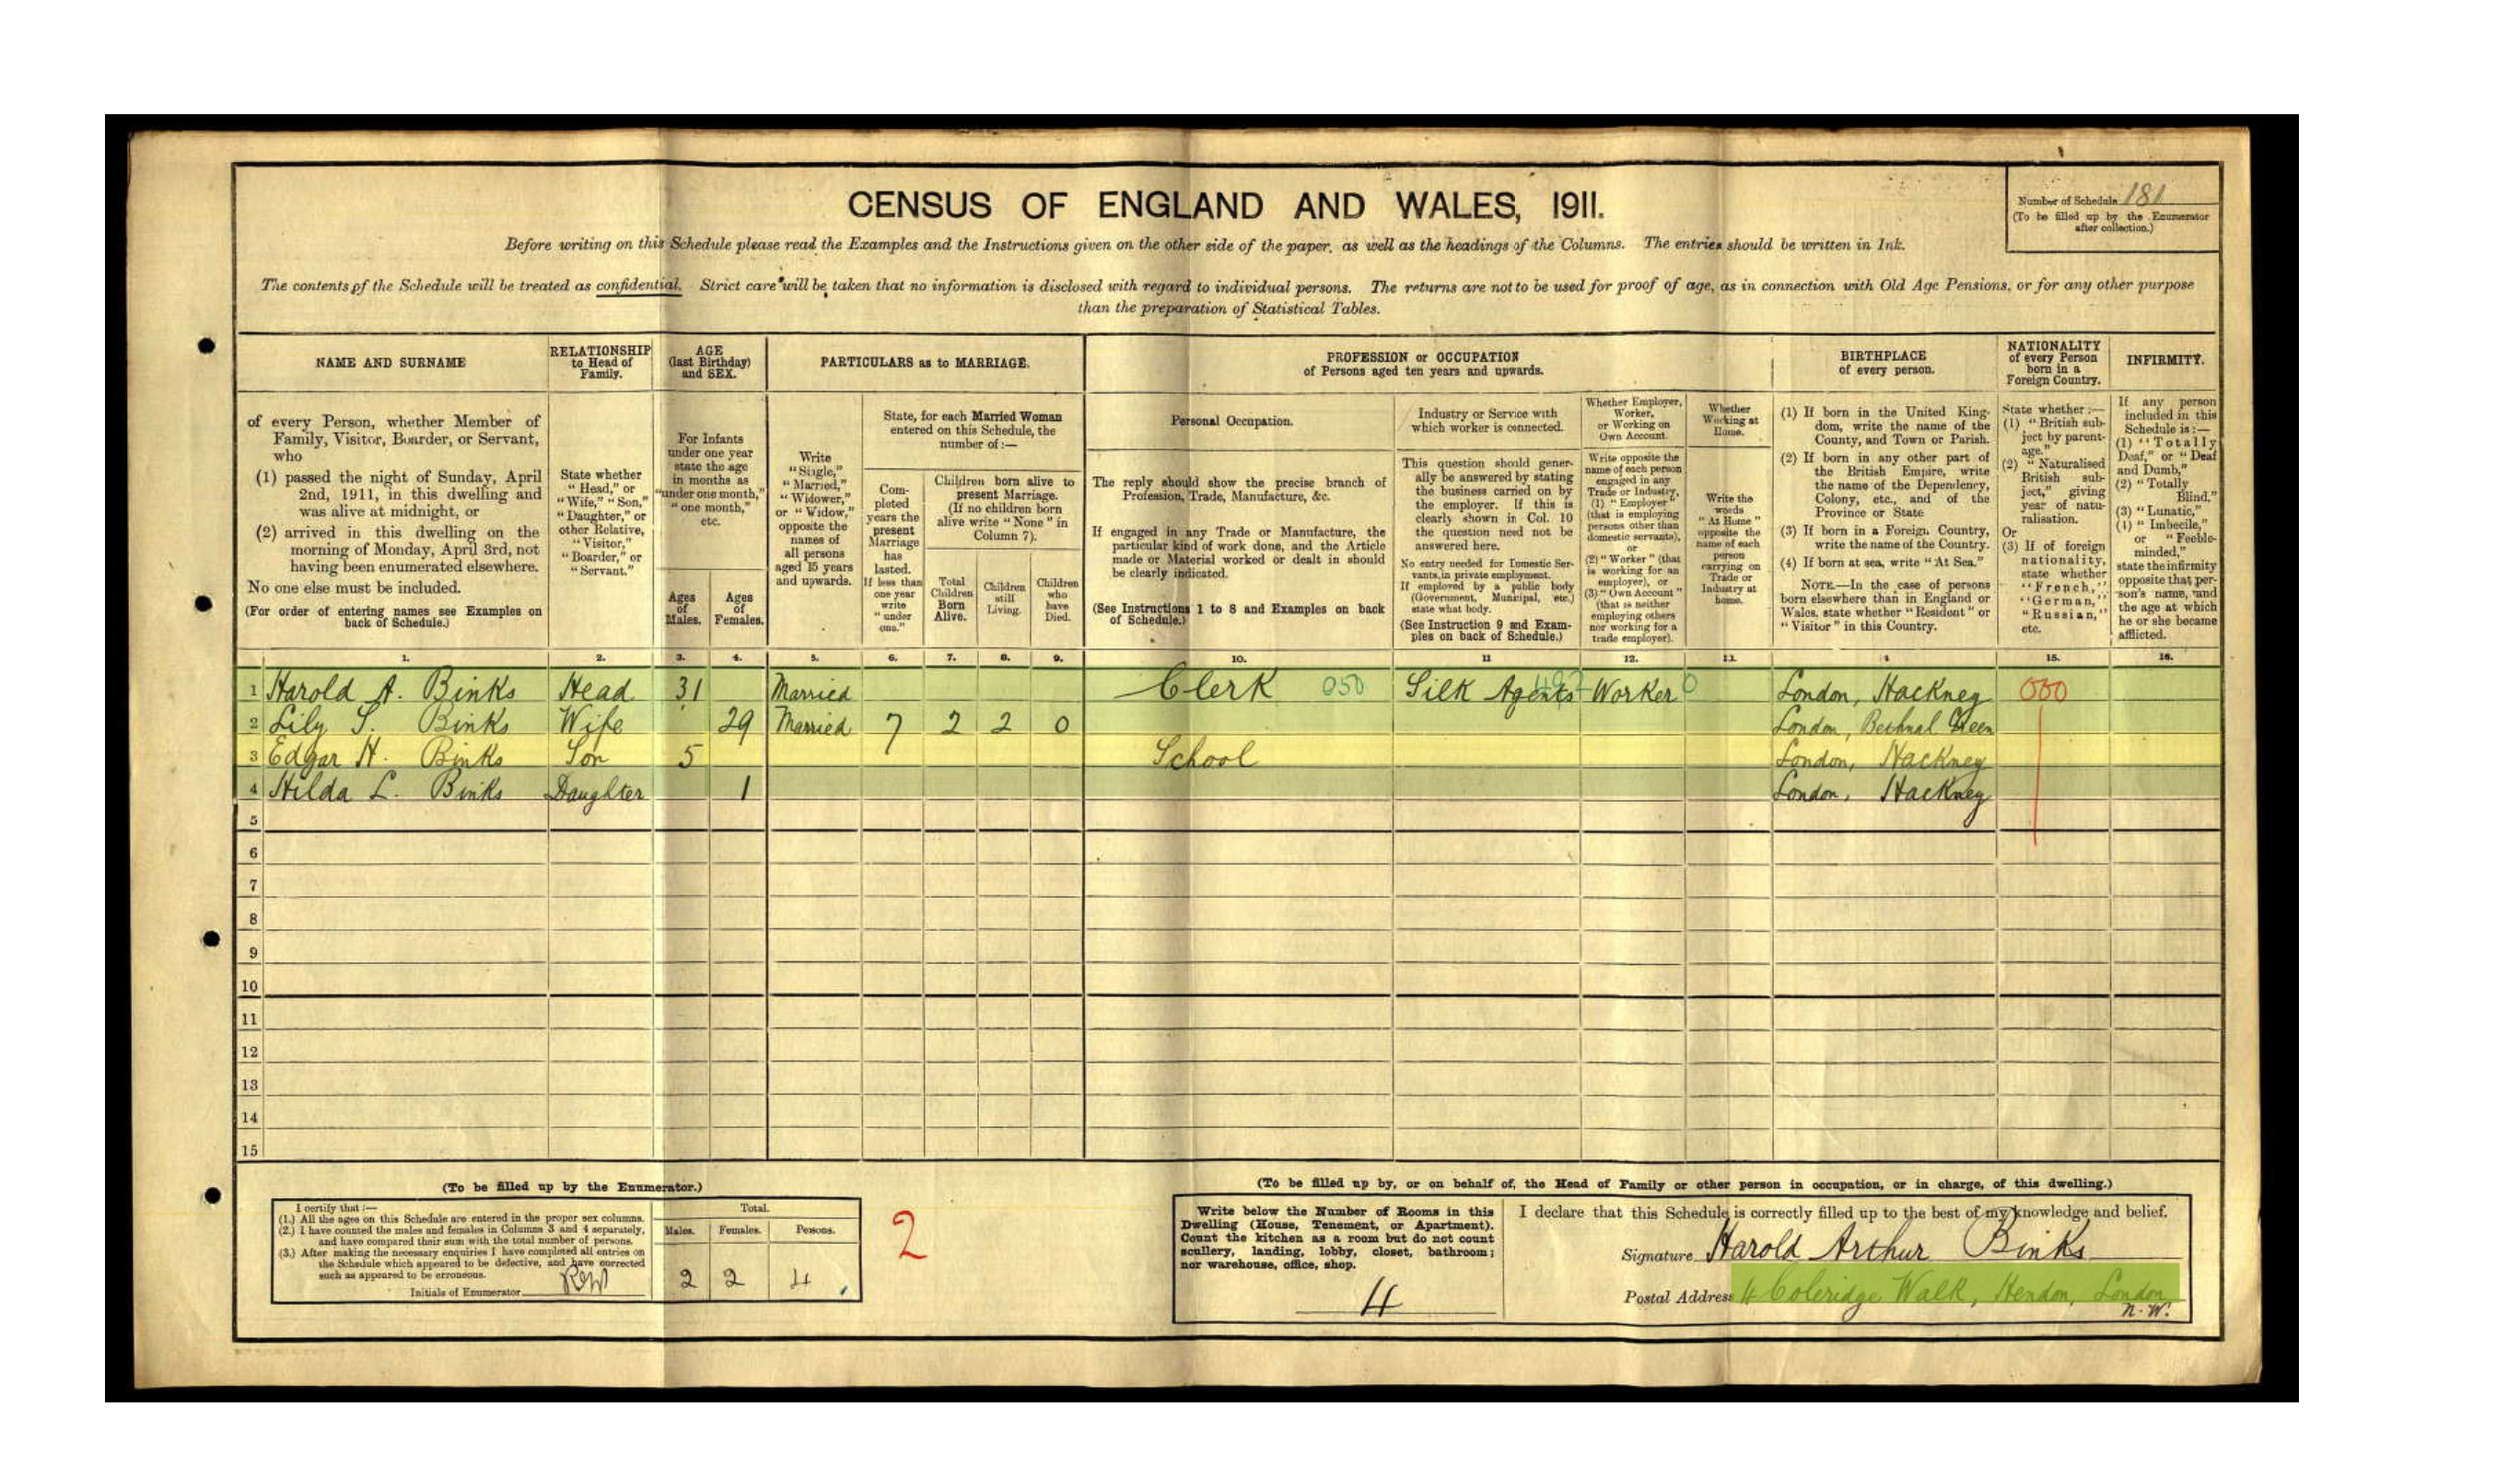 CENSUS OF ENGLAND AND WALES, 1911.
Number of Schedule 181
(To be filled up by the Enumerator after collection.)
Before writing on this Schedule please read the Examples and the Instructions given on the other side of the paper, as well as the headings of the Columns. The entries should be written in Ink.
The contents of the Schedule will be treated as confidential. Strict care will be taken that no information is disclosed with regard to individual persons. The returns are not to be used for proof of age, as in connection with Old Age Pensions, or for any other purpose
than the preparation of Statistical Tables.
NAME AND SURNAME
of every Person, whether Member of
Family, Visitor, Boarder, or Servant,
who
(1) passed the night of Sunday, April
2nd, 1911, in this dwelling and
was alive at midnight, or
(2) arrived in this dwelling on the
morning of Monday, April 3rd, not
having been enumerated elsewhere.
No one else must be included.
(For order of entering names see Examples on
back of Schedule.)
RELATIONSHIP
to Head of
Family.
State whether
"Head," or
"Wife," "Son,"
"Daughter," or
other Relative,
"Visitor,"
"Boarder," or
"Servant."
AGE
(last Birthday)
and SEX.
For Infants
under one year
state the age
in months as
"under one month,"
"one month,"
etc.
Ages
of
Males.
Ages
of
Females.
PARTICULARS as to MARRIAGE.
Write
"Single,"
"Married,"
"Widower,"
or "Widow,"
opposite the
names of
all persons
aged 15 years
and upwards.
State, for each Married Woman
entered on this Schedule, the
number of:—
Com-
pleted
years the
present
Marriage
has
lasted.
If less than
one year
write
"under
one."
Children born alive to
present Marriage.
(If no children born
alive write "None" in
Column 7).
Total
Children
Born
Alive.
Children
still
Living.
Children
who
have
Died.
PROFESSION or OCCUPATION
of Persons aged ten years and upwards.
Personal Occupation.
The reply should show the precise branch of
Profession, Trade, Manufacture, &c.
If engaged in any Trade or Manufacture, the
particular kind of work done, and the Article
made or Material worked or dealt in should
be clearly indicated.
(See Instructions 1 to 8 and Examples on back
of Schedule.)
Industry or Service with
which worker is connected.
This question should gener-
ally be answered by stating
the business carried on by
the employer. If this is
clearly shown in Col. 10
the question need not be
answered here.
No entry needed for Domestic Ser-
vants in private employment.
If employed by a public body
(Government, Municipal, etc.)
state what body.
(See Instruction 9 and Exam-
ples on back of Schedule.)
Whether Employer,
Worker,
or Working on
Own Account.
Write opposite the
name of each person
engaged in any
Trade or Industry,
(1) "Employer"
(that is employing
persons other than
domestic servants),
or
(2) "Worker" (that
is working for an
employer), or
(3) "Own Account"
(that is neither
employing others
nor working for a
trade employer).
Whether
Working at
Home.
Write the
words
"At Home"
opposite the
name of each
person
carrying on
Trade or
Industry at
home.
BIRTHPLACE
of every person.
(1) If born in the United King-
dom, write the name of the
County, and Town or Parish.
(2) If born in any other part of
the British Empire, write
the name of the Dependency,
Colony, etc., and of the
Province or State
(3) If born in a Foreign Country,
write the name of the Country.
(4) If born at sea, write "At Sea."
NOTE—In the case of persons
born elsewhere than in England or
Wales, state whether "Resident" or
"Visitor" in this Country.
NATIONALITY
of every Person
born in a
Foreign Country.
State whether:—
(1) "British sub-
ject by parent-
age."
(2) "Naturalised
British sub-
ject," giving
year of natu-
ralisation.
Or
(3) If of foreign
nationality,
state whether
"French,"
"German,"
"Russian,"
etc.
INFIRMITY.
If any person
included in this
Schedule is:—
(1) "Totally
Deaf," or "Deaf
and Dumb,"
(2) "Totally
Blind,"
(3) "Lunatic,"
(4) "Imbecile,"
or "Feeble-
minded,"
state the infirmity
opposite that per-
son's name, and
the age at which
he or she became
afflicted.
1. 2. 3. 4. 5. 6. 7. 8. 9. 10. 11 12. 13. 4 15. 16.
1 Harold A. Binks Head 31 Married Clerk 050 Silk Agents Worker 0 London, Hackney 000
2 Lily S. Binks Wife 29 Married 7 2 2 0 London, Bethnal Green
3 Edgar H. Binks Son 5 School London, Hackney
4 Hilda L. Binks Daughter 1 London, Hackney
5
6
7
8
9
10
11
12
13
14
15
(To be filled up by the Enumerator.)
I certify that:—
(1.) All the ages on this Schedule are entered in the proper sex columns.
(2.) I have counted the males and females in Columns 3 and 4 separately,
and have compared their sum with the total number of persons.
(3.) After making the necessary enquiries I have completed all entries on
the Schedule which appeared to be defective, and have corrected
such as appeared to be erroneous.
Initials of Enumerator
Total.
Males. Females. Persons.
2 2 4
2
(To be filled up by, or on behalf of, the Head of Family or other person in occupation, or in charge, of this dwelling.)
Write below the Number of Rooms in this
Dwelling (House, Tenement, or Apartment).
Count the kitchen as a room but do not count
scullery, landing, lobby, closet, bathroom;
nor warehouse, office, shop.
4
I declare that this Schedule is correctly filled up to the best of my knowledge and belief.
Signature Harold Arthur Binks
Postal Address 4 Coleridge Walk, Hendon, London
N.W.